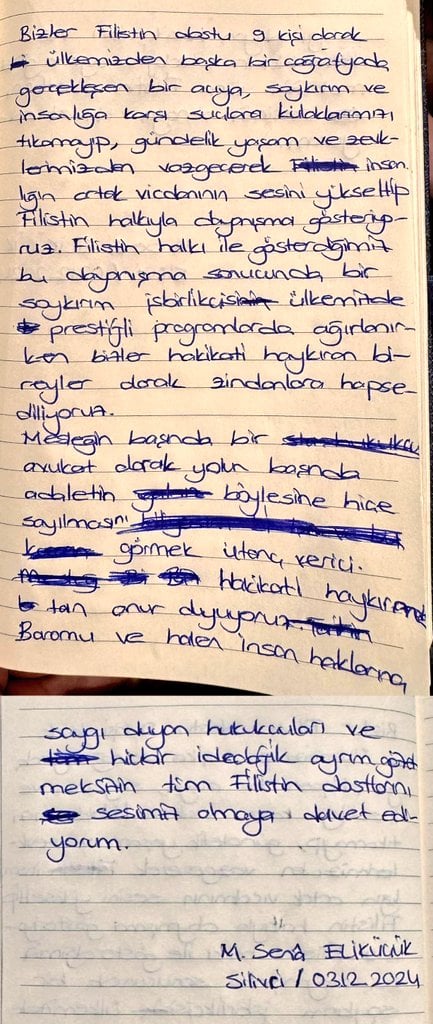 Bizler Filistin dostu 9 kişi olarak
ülkemizden başka bir coğrafyada
gerçekleşen bir acıya, soykırım ve
insanlığa karşı suçlara kulaklarımızı
tıkamayıp, gündelik yaşam ve zevk-
lerimizden vazgeçerek Filistin insan
lığın ortak vicdanının sesini yükseltip
Filistin halkıyla dayanışma gösteriyo-
ruz. Filistin halkı ile gösterdiğimiz
bu dayanışma sonucunda bir
soykırım işbirlikçisi ülkemizde
prestijli programlarda ağırlanır-
ken bizler hakikati haykıran bi-
reyler olarak zindanlara hapse-
diliyoruz.
Mesleğin başında bir
avukat olarak yolun başında
adaletin böylesine hiçe
sayılmasını
görmek utanç verici.
Hakikati haykırmak
tan onur duyuyoruz.
Baromu ve halen insan haklarına
saygı duyan hukukçuları ve
hiçbir ideolojik ayrım gözet
meksizin tüm Filistin dostlarını
sesimiz olmaya davet edi-
yorum.
M. Senâ ELİKÜÇÜK
Silivri / 03.12.2024